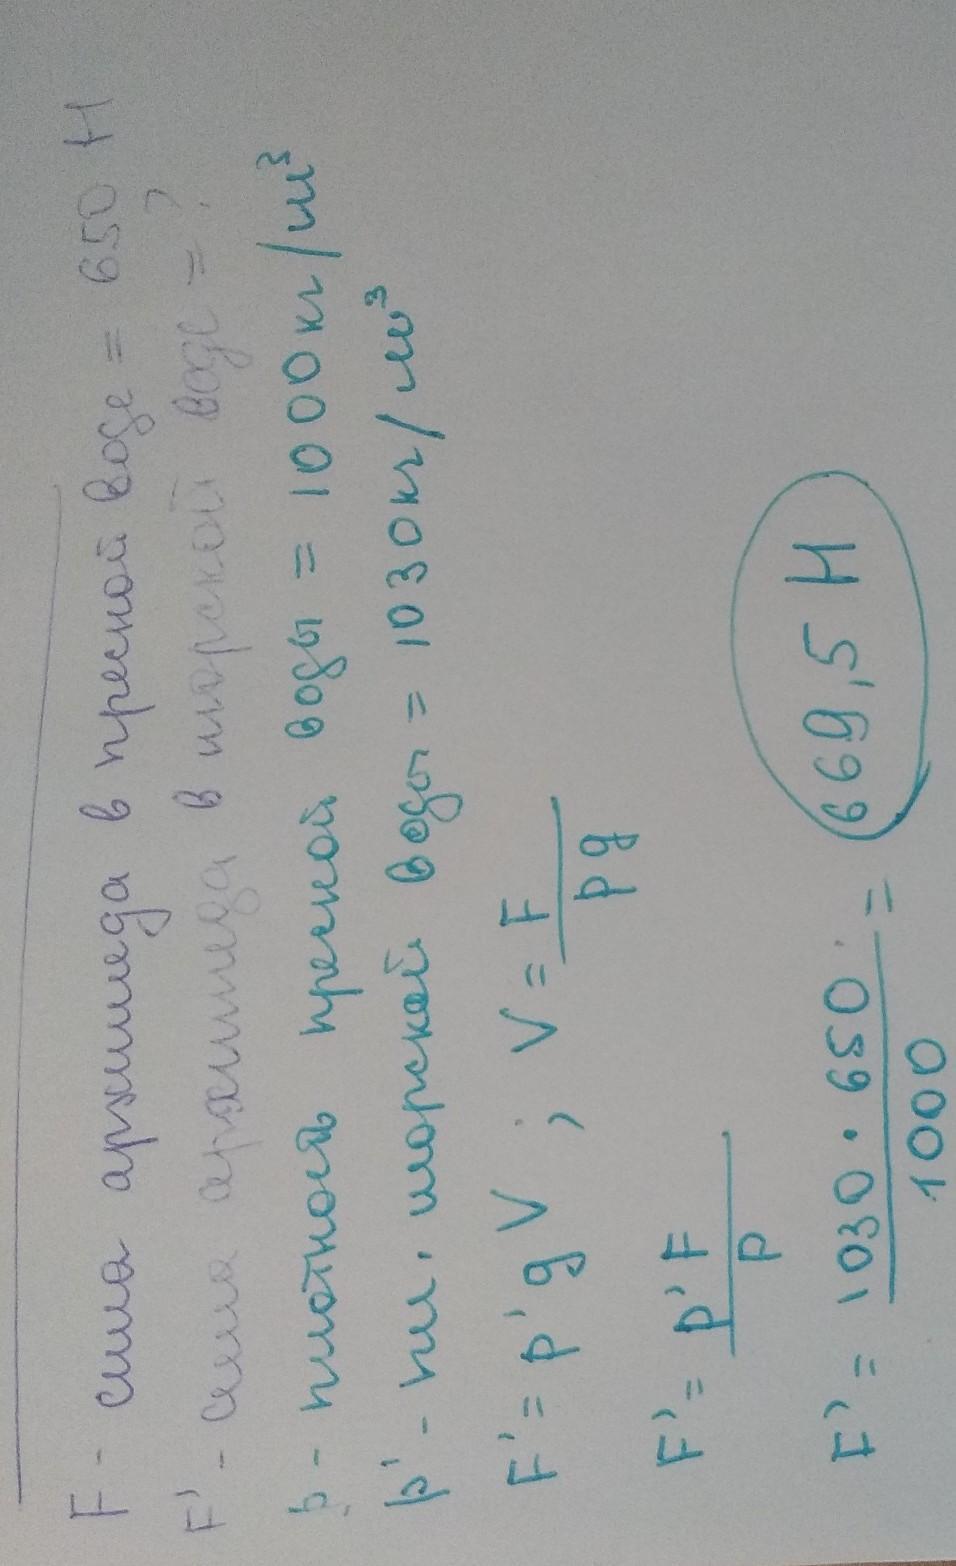 F - сила архимеда в пресной воде = 650 Н
F' - сила архимеда в морской воде = ?
p - плотность пресной воды = 1000 кг/м³
p' - пл. морской воды = 1030 кг/м³
F' = p' g V ; V = F / pg
F' = p' F / p
F' = 1030 · 650 / 1000 = 669,5 Н